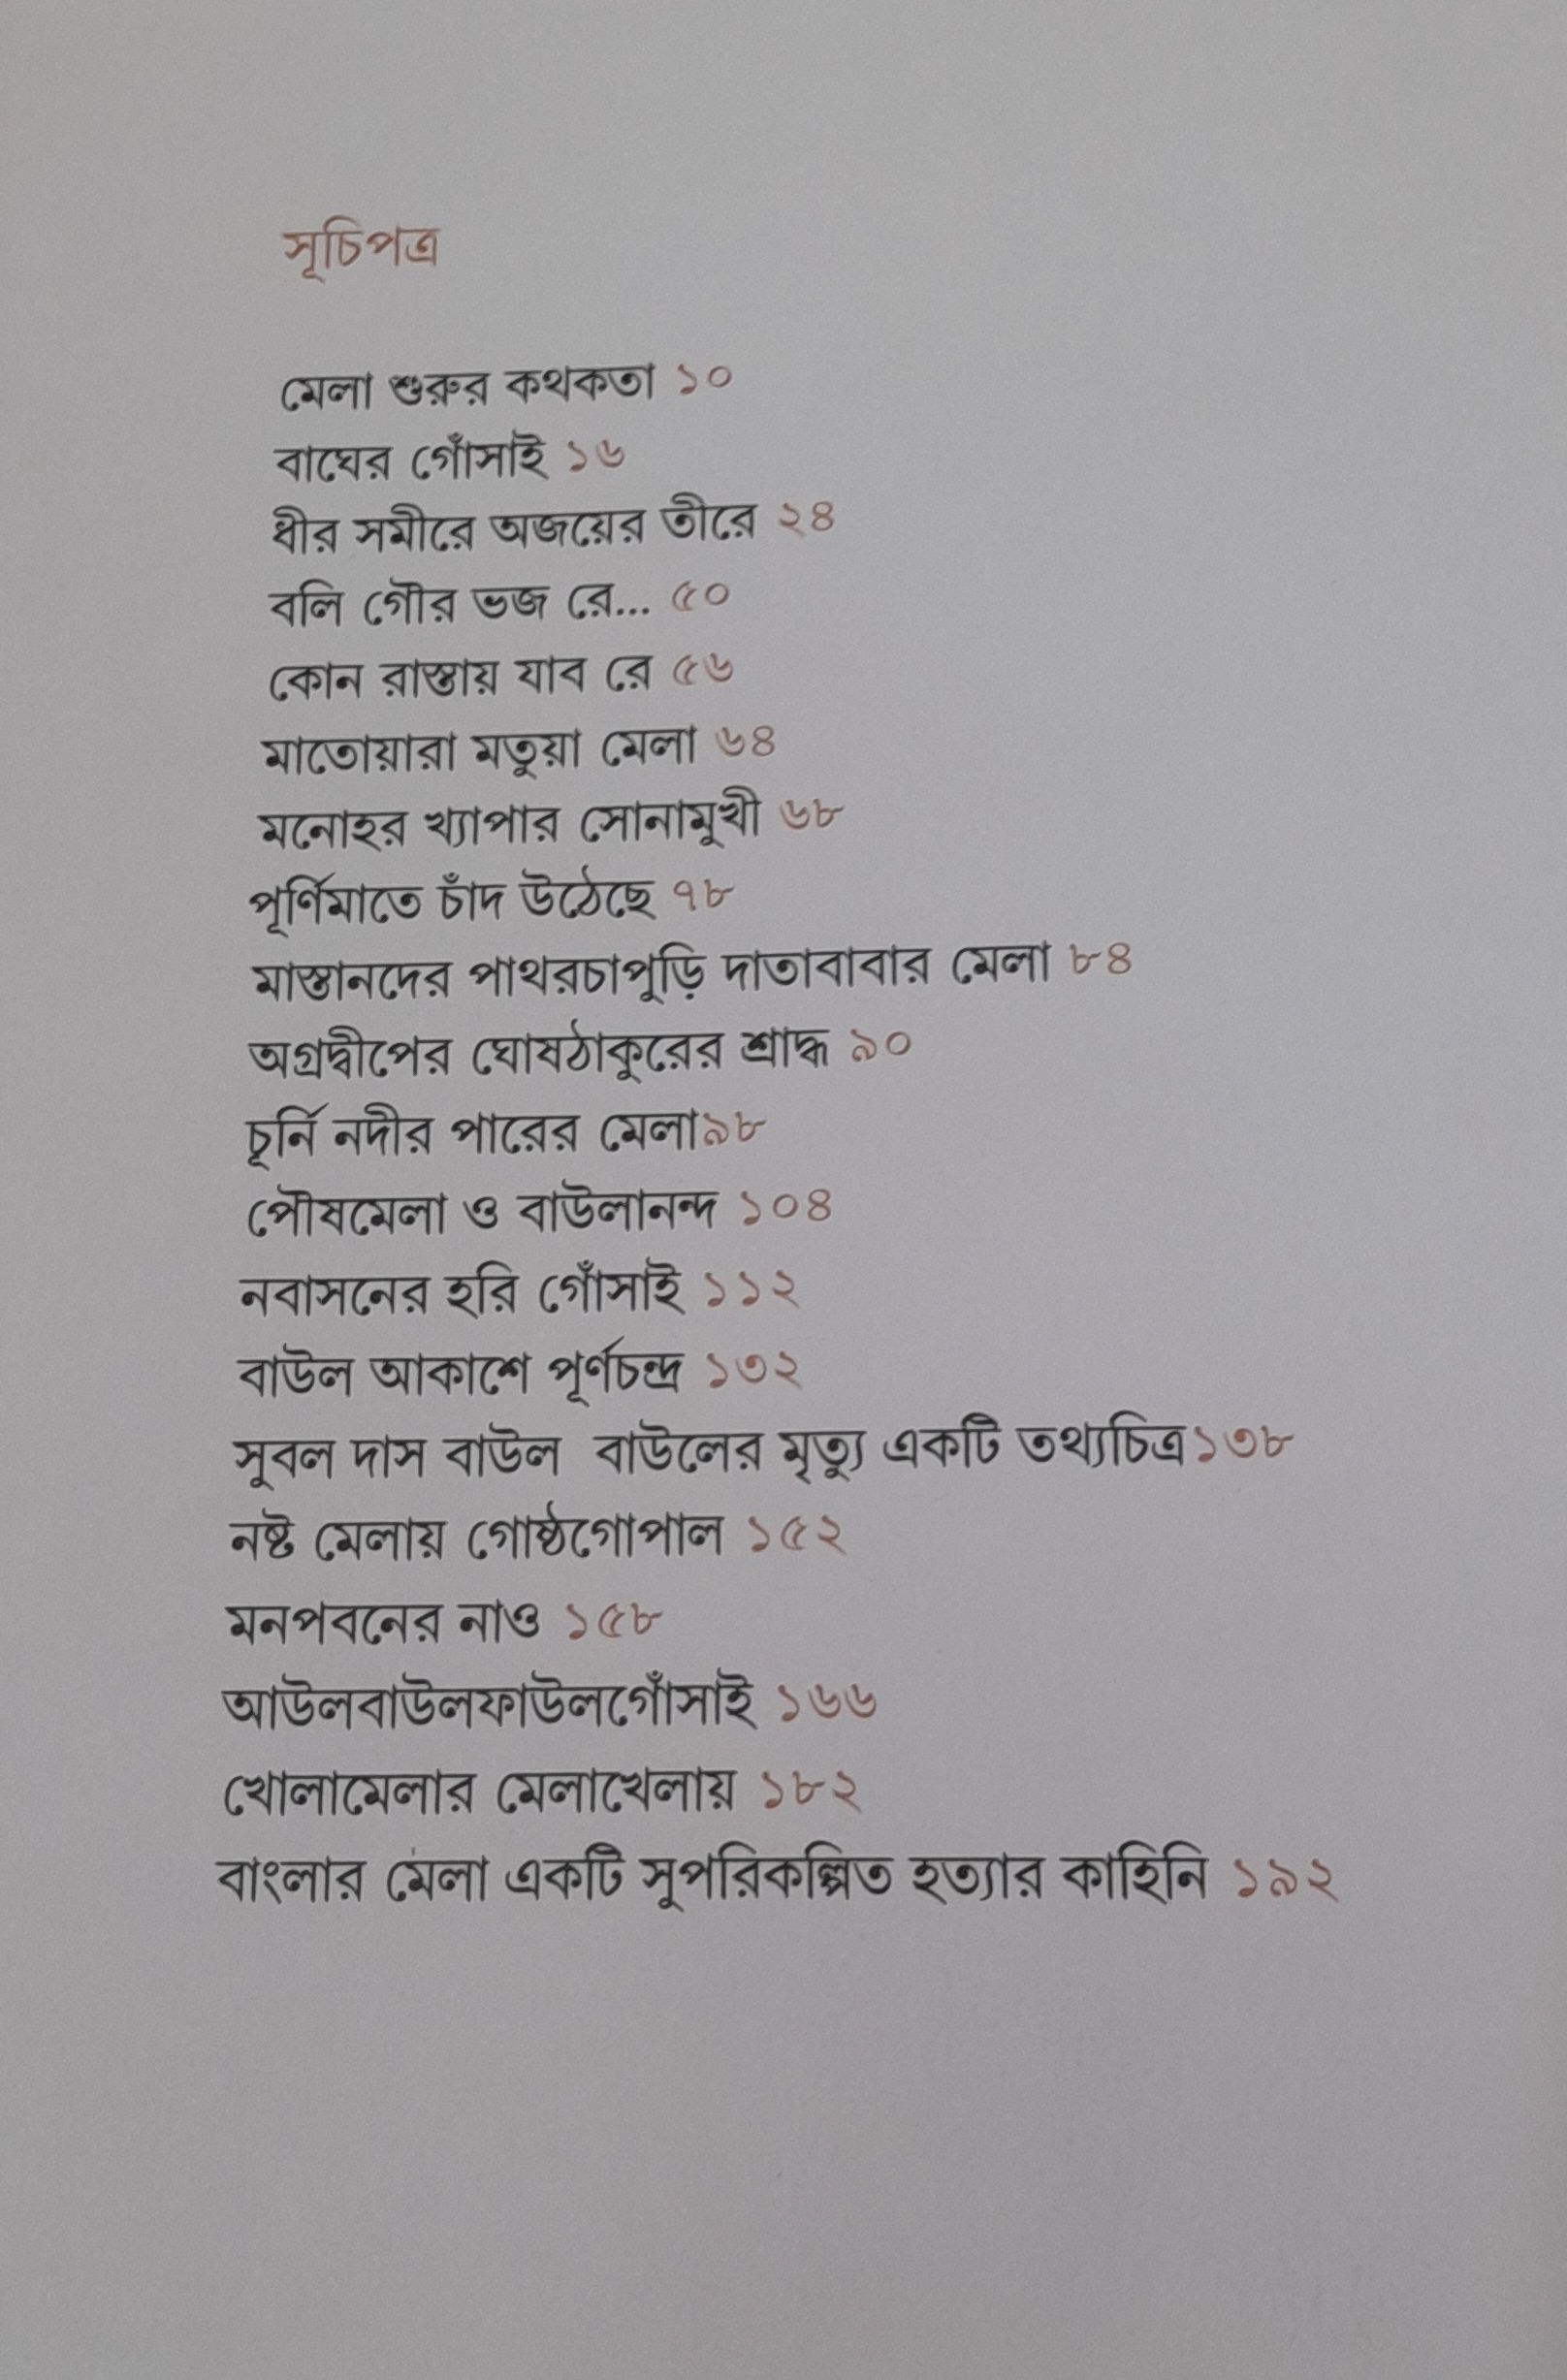 সূচিপত্র
মেলা শুরুর কথকতা ১০
বাঘের গোঁসাই ১৬
ধীর সমীরে অজয়ের তীরে ২৪
বলি গৌর ভজ রে... ৫০
কোন রাস্তায় যাব রে ৫৬
মাতোয়ারা মতুয়া মেলা ৬৪
মনোহর খ্যাপার সোনামুখী ৬৮
পূর্ণিমাতে চাঁদ উঠেছে ৭৮
মাস্তানদের পাথরচাপুড়ি দাতাবাবার মেলা ৮৪
অগ্রদ্বীপের ঘোষঠাকুরের শ্রাদ্ধ ৯০
চূর্নি নদীর পারের মেলা৯৮
পৌষমেলা ও বাউলানন্দ ১০৪
নবাসনের হরি গোঁসাই ১১২
বাউল আকাশে পূর্ণচন্দ্র ১৩২
সুবল দাস বাউল বাউলের মৃত্যু একটি তথ্যচিত্র১৩৮
নষ্ট মেলায় গোষ্ঠগোপাল ১৫২
মনপবনের নাও ১৫৮
আউলবাউলফাউলগোঁসাই ১৬৬
খোলামেলার মেলাখেলায় ১৮২
বাংলার মেলা একটি সুপরিকল্পিত হত্যার কাহিনি ১৯২